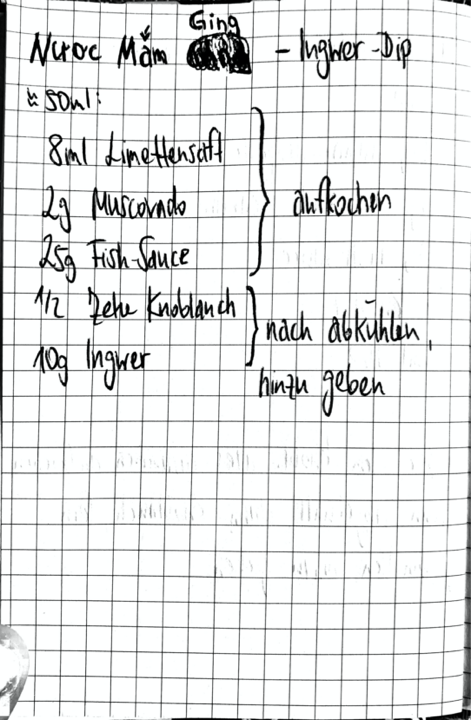 Nước Mắm Ging - Ingwer-Dip
≈ 50ml:
8ml Limettensaft
2g Muscovado
25g Fish-Sauce
} aufkochen
1/2 Zehe Knoblauch
10g Ingwer
} nach abkühlen,
hinzu geben